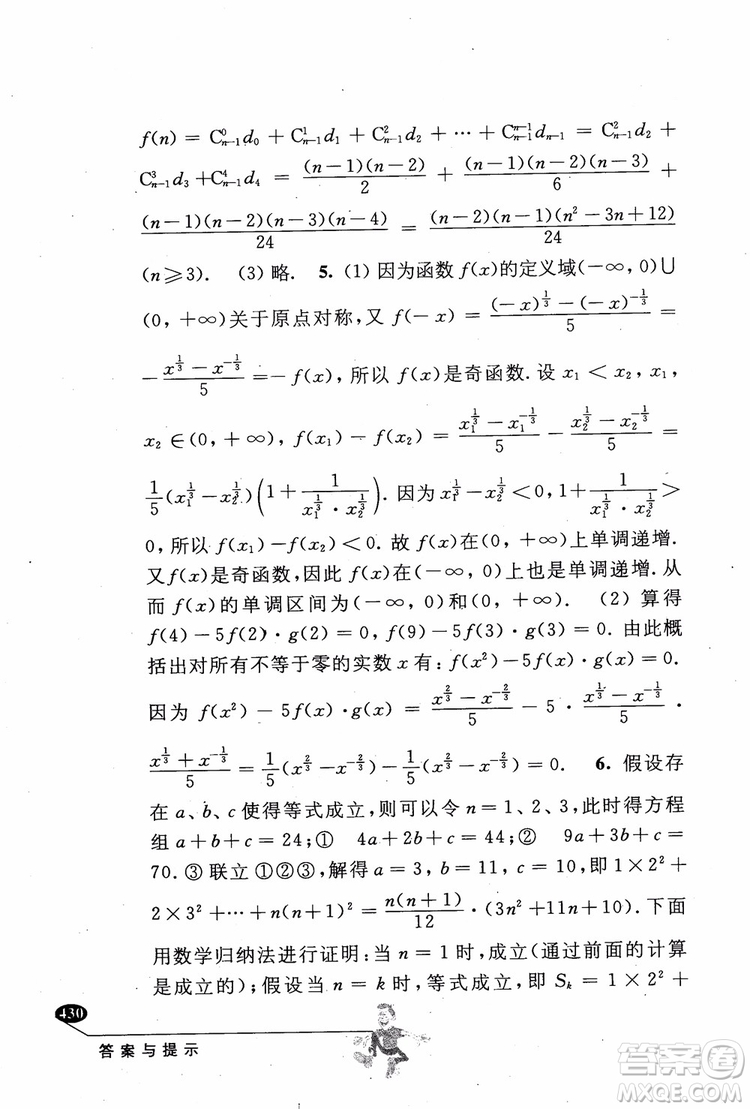 f(n) = C⁰ₙ₋₁d₀ + C¹ₙ₋₁d₁ + C²ₙ₋₁d₂ + ⋯ + Cⁿ⁻¹ₙ₋₁dₙ₋₁ = C²ₙ₋₁d₂ +
C³ₙ₋₁d₃ + C⁴ₙ₋₁d₄ = (n−1)(n−2)/2 + (n−1)(n−2)(n−3)/6 +
(n−1)(n−2)(n−3)(n−4)/24 = (n−1)(n−2)(n²−3n+12)/24
(n≥3). (3) 略. 5. (1) 因为函数 f(x)的定义域(−∞, 0)∪
(0, +∞)关于原点对称,又 f(−x) = ((−x)^(1/3) − (−x)^(−1/3))/5 =
−(x^(1/3) − x^(−1/3))/5 = −f(x), 所以 f(x)是奇函数. 设 x₁ < x₂, x₁,
x₂ ∈ (0, +∞), f(x₁) − f(x₂) = (x₁^(1/3) − x₁^(−1/3))/5 − (x₂^(1/3) − x₂^(−1/3))/5 =
1/5(x₁^(1/3) − x₂^(1/3))(1 + 1/(x₁^(1/3) · x₂^(1/3))). 因为 x₁^(1/3) − x₂^(1/3) < 0, 1 + 1/(x₁^(1/3) · x₂^(1/3)) >
0, 所以 f(x₁) − f(x₂) < 0. 故 f(x)在(0, +∞)上单调递增.
又 f(x)是奇函数,因此 f(x)在(−∞, 0)上也是单调递增. 从
而 f(x)的单调区间为(−∞, 0)和(0, +∞). (2) 算得
f(4) − 5f(2) · g(2) = 0, f(9) − 5f(3) · g(3) = 0. 由此概
括出对所有不等于零的实数 x 有: f(x²) − 5f(x) · g(x) = 0.
因为 f(x²) − 5f(x) · g(x) = (x^(2/3) − x^(−2/3))/5 − 5 · (x^(1/3) − x^(−1/3))/5 ·
(x^(1/3) + x^(−1/3))/5 = 1/5(x^(2/3) − x^(−2/3)) − 1/5(x^(2/3) − x^(−2/3)) = 0. 6. 假设存
在 a、b、c 使得等式成立,则可以令 n = 1、2、3,此时得方程
组 a + b + c = 24; ① 4a + 2b + c = 44; ② 9a + 3b + c =
70. ③ 联立 ①②③, 解得 a = 3, b = 11, c = 10, 即 1×2² +
2×3² + ⋯ + n(n+1)² = n(n+1)/12 · (3n² + 11n + 10), 下面
用数学归纳法进行证明: 当 n = 1 时,成立(通过前面的计算
是成立的); 假设当 n = k 时,等式成立,即 Sₖ = 1×2² +
430
答案与提示
答案圈
MXQE.COM